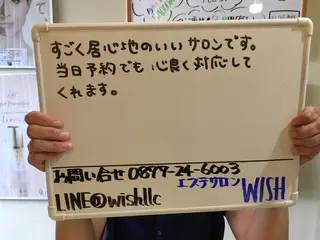 すごく居心地のいいサロンです。
当日予約でも心良く対応して
くれます。
お問い合せ 0877-24-6003
エステサロン WISH
LINE@wishllc